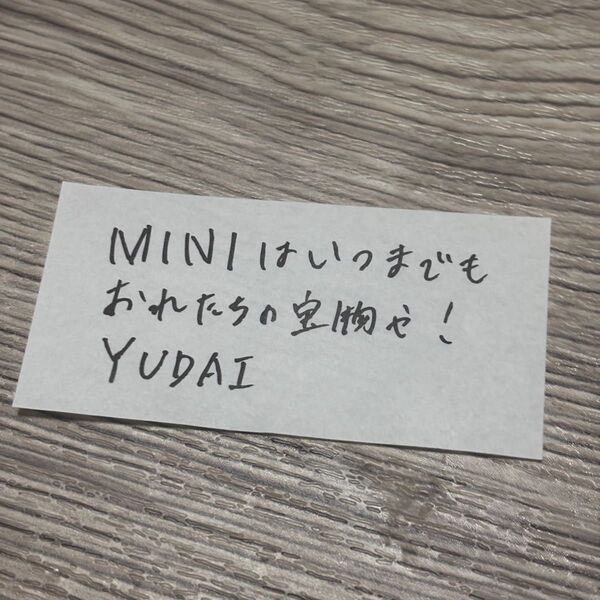 MINIはいつまでも
おれたちの宝物や！
YUDAI